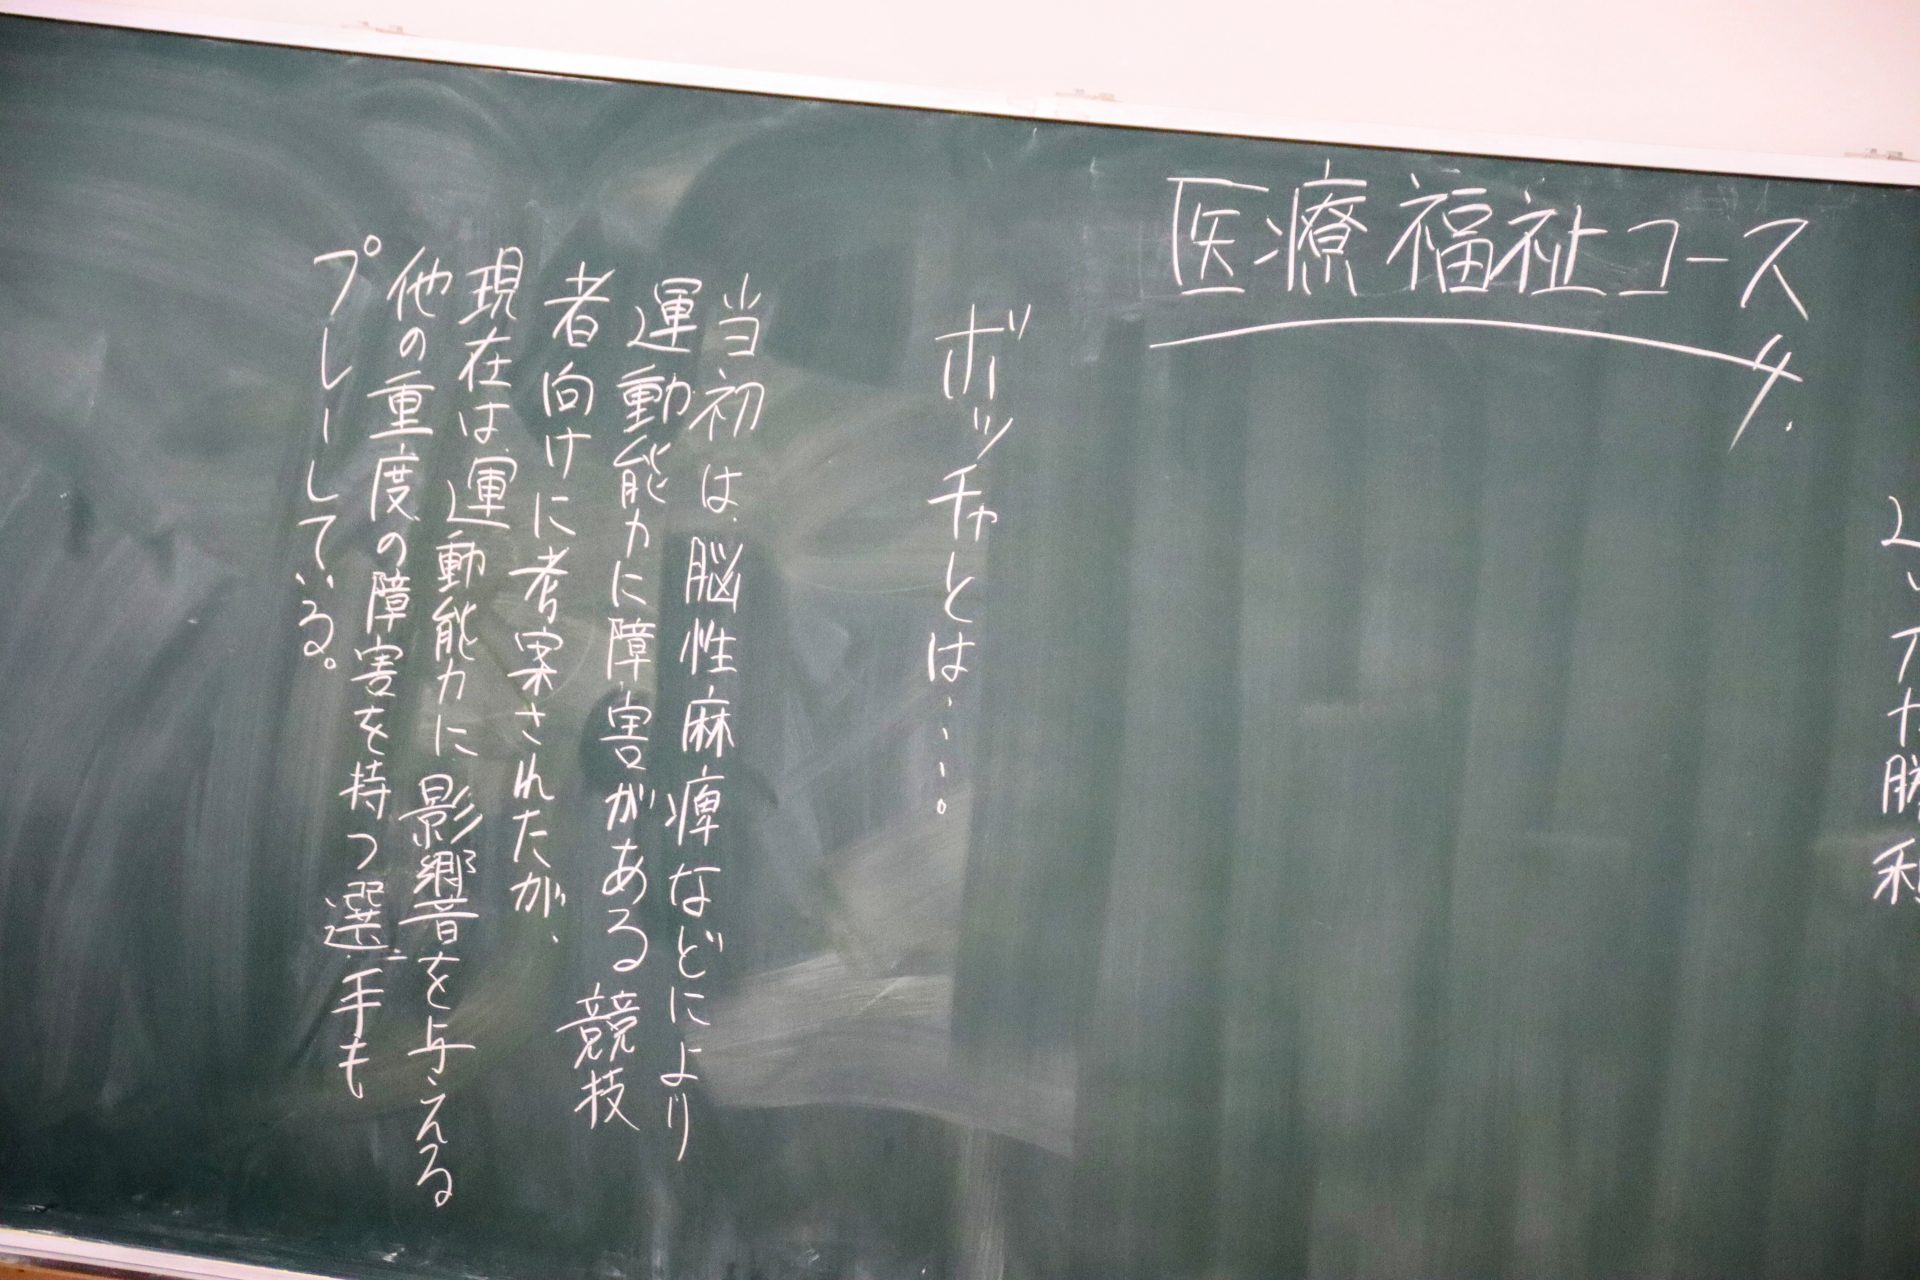 医療福祉コース
ボッチャとは・・・・。
当初は、脳性麻痺などにより
運動能力に障害がある競技
者向けに考案されたが、
現在は、運動能力に影響を与える
他の重度の障害を持つ選手も
プレーしている。